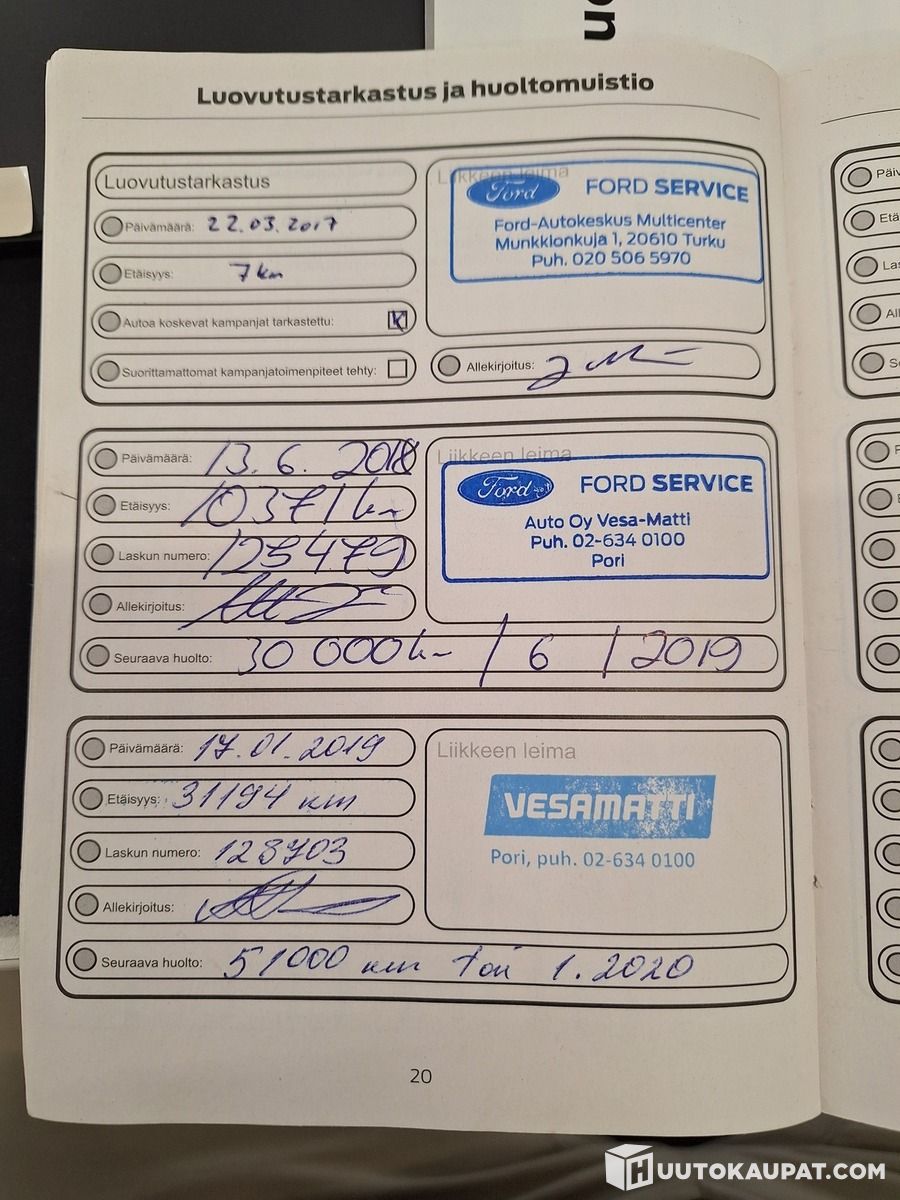 on
Luovutustarkastus ja huoltomuistio
Luovutustarkastus
Päivämäärä: 22.03.2017
Etäisyys: 7 km
Autoa koskevat kampanjat tarkastettu:
Suorittamattomat kampanjatoimenpiteet tehty:
Liikkeen leima
Ford FORD SERVICE
Ford-Autokeskus Multicenter
Munkkionkuja 1, 20610 Turku
Puh. 020 506 5970
Allekirjoitus:
Päivämäärä: 13.6. 2018
Etäisyys: 10371 km
Laskun numero: 125479
Allekirjoitus:
Liikkeen leima
Ford FORD SERVICE
Auto Oy Vesa-Matti
Puh. 02-634 0100
Pori
Seuraava huolto: 30 000 km / 6 / 2019
Päivämäärä: 17.01.2019
Etäisyys: 31194 km
Laskun numero: 128703
Allekirjoitus:
Liikkeen leima
VESAMATTI
Pori, puh. 02-634 0100
Seuraava huolto: 51000 km tai 1.2020
20
HUUTOKAUPAT.COM